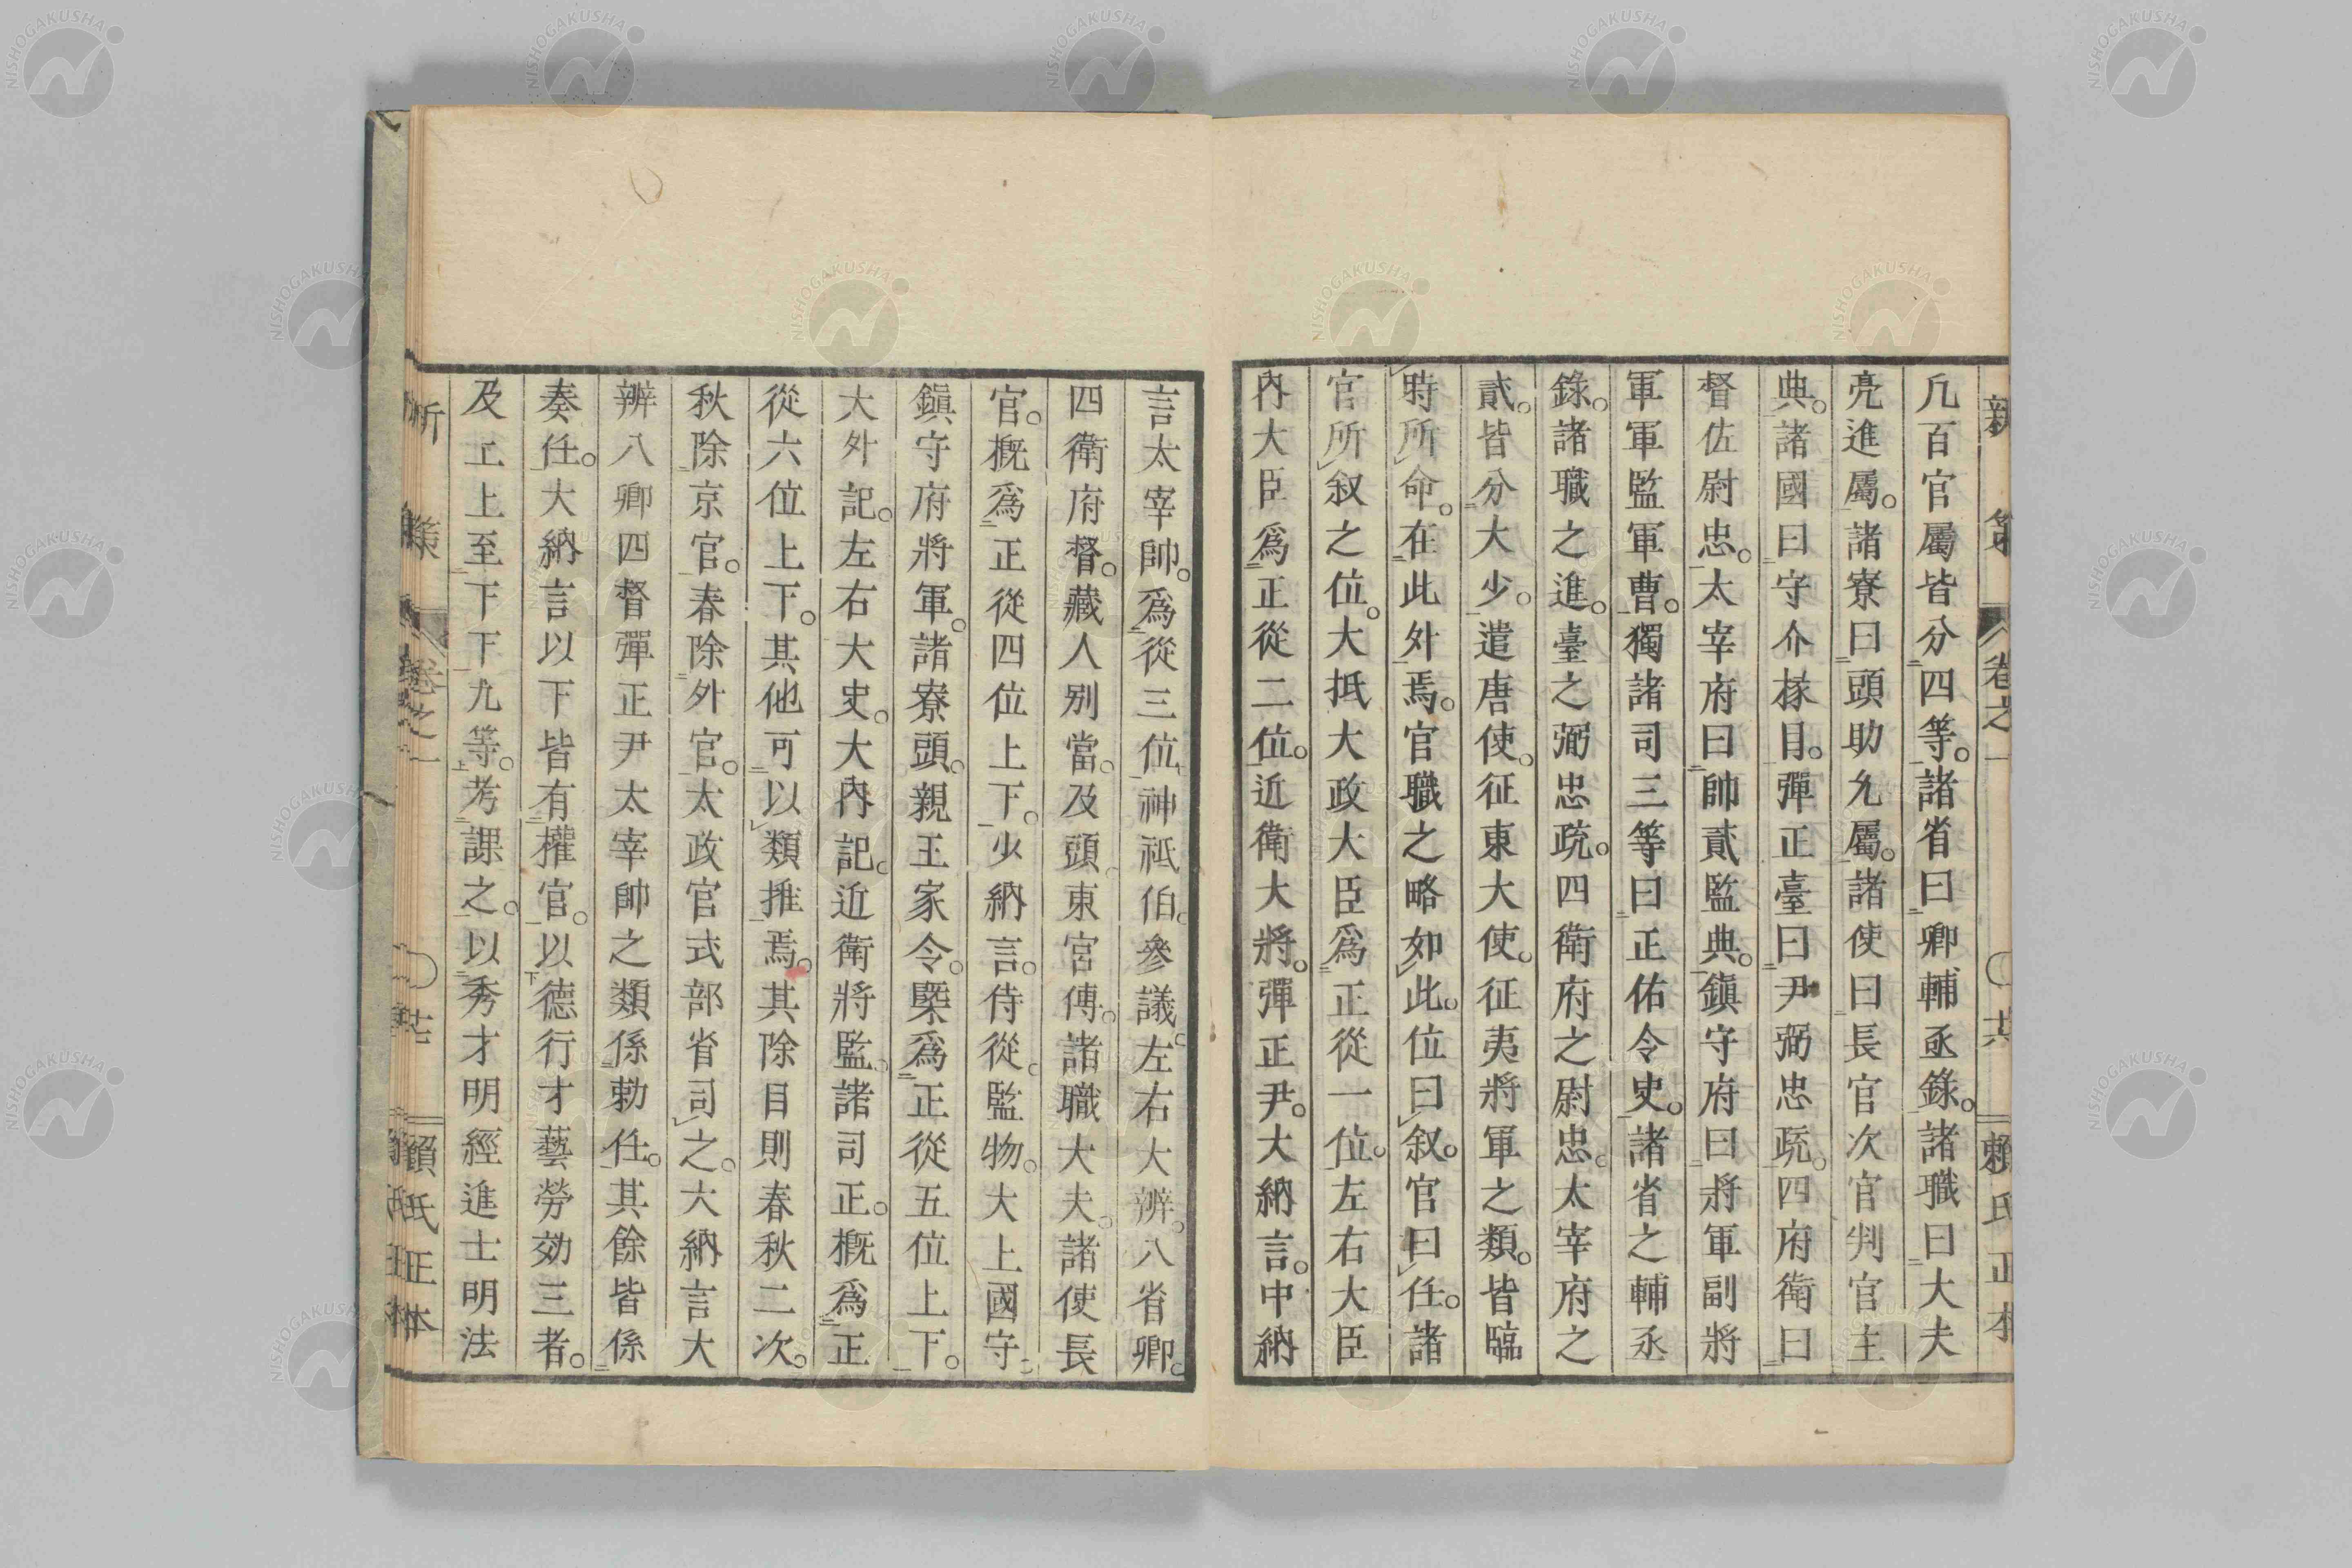 新策 卷之一 〇 賴氏正本
凡百官屬皆分四等。諸省曰卿輔丞錄。諸職曰大夫
亮進屬。諸寮曰頭助允屬。諸使曰長官次官判官主
典。諸國曰守介掾目。彈正臺曰尹弼忠疏。四府衛曰
督佐尉忠。太宰府曰帥貳監典。鎮守府曰將軍副將
軍軍監軍曹。獨諸司三等曰正佑令史。諸省之輔丞
錄。諸職之進。臺之弼忠疏。四衛府之尉忠。太宰府之
貳。皆分大少。遣唐使。征東大使。征夷將軍之類。皆臨
時所命。在此外焉。官職之略如此。位曰叙。官曰任。諸
官所叙之位。大抵大政大臣爲正從一位。左右大臣
內大臣爲正從二位。近衛大將。彈正尹。大納言。中納
言太宰帥。爲從三位。神祇伯。參議。左右大辨。八省卿。
四衛府督。藏人別當。及頭東宮傅。諸職大夫。諸使長
官。概爲正從四位上下。少納言。侍從。監物。大上國守。
鎮守府將軍。諸寮頭。親王家令。槩爲正從五位上下。
大外記。左右大史。大內記。近衛將監。諸司正。概爲正
從六位上下。其他可以類推焉。其除目則春秋二次。
秋除京官。春除外官。太政官式部省司之。大納言大
辨八卿四督彈正尹太宰帥之類係勅任。其餘皆係
奏任。大納言以下皆有權官。以德行才藝勞効三者。
及上上至下下九等。考課之。以秀才明經進士明法
新策 卷之一 〇 賴氏正本
NISHOGAKUSHA